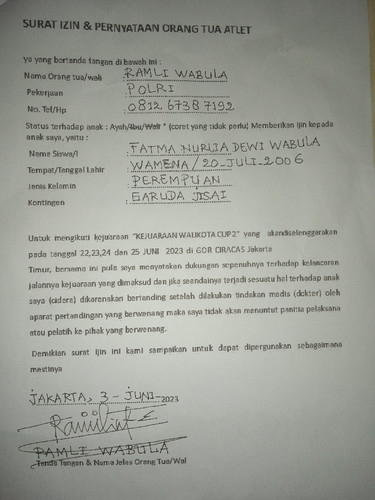 SURAT IZIN & PERNYATAAN ORANG TUA ATLET
ya yang bertanda tangan di bawah ini :
Nama Orang tua/wali : RAMLI WABULA
Pekerjaan : POLRI
No. Tel/Hp : 0812 6738 7192
Status terhadap anak : Ayah/Abu/Wali * (coret yang tidak perlu) Memberikan ijin kepada
anak saya, yaitu :
Nama Siswa/i : FATMA NURLIA DEWI WABULA
Tempat/Tanggal Lahir : WAMENA / 20-JULI-2006
Jenis Kelamin : PEREMPUAN
Kontingen : GARUDA JISAI
Untuk mengikuti kejuaraan "KEJUARAAN WALIKOTA CUP 2" yang akandiselenggarakan
pada tanggal 22,23,24 dan 25 JUNI 2023 di GOR CIRACAS Jakarta
Timur, bersama ini pula saya menyatakan dukungan sepenuhnya terhadap kelancaran
jalannya kejuaraan yang dimaksud dan jika seandainya terjadi sesuatu hal terhadap anak
saya (cidera) dikarenakan bertanding setelah dilakukan tindakan medis (dokter) oleh
aparat pertandingan yang berwenang maka saya tidak akan menuntut panitia pelaksana
atau pelatih ke pihak yang berwenang.
Demikian surat ijin ini kami sampaikan untuk dapat dipergunakan sebagaimana
mestinya
JAKARTA, 3 - JUNI - 2023
RAMLI WABULA
Tanda Tangan & Nama Jelas Orang Tua/Wal